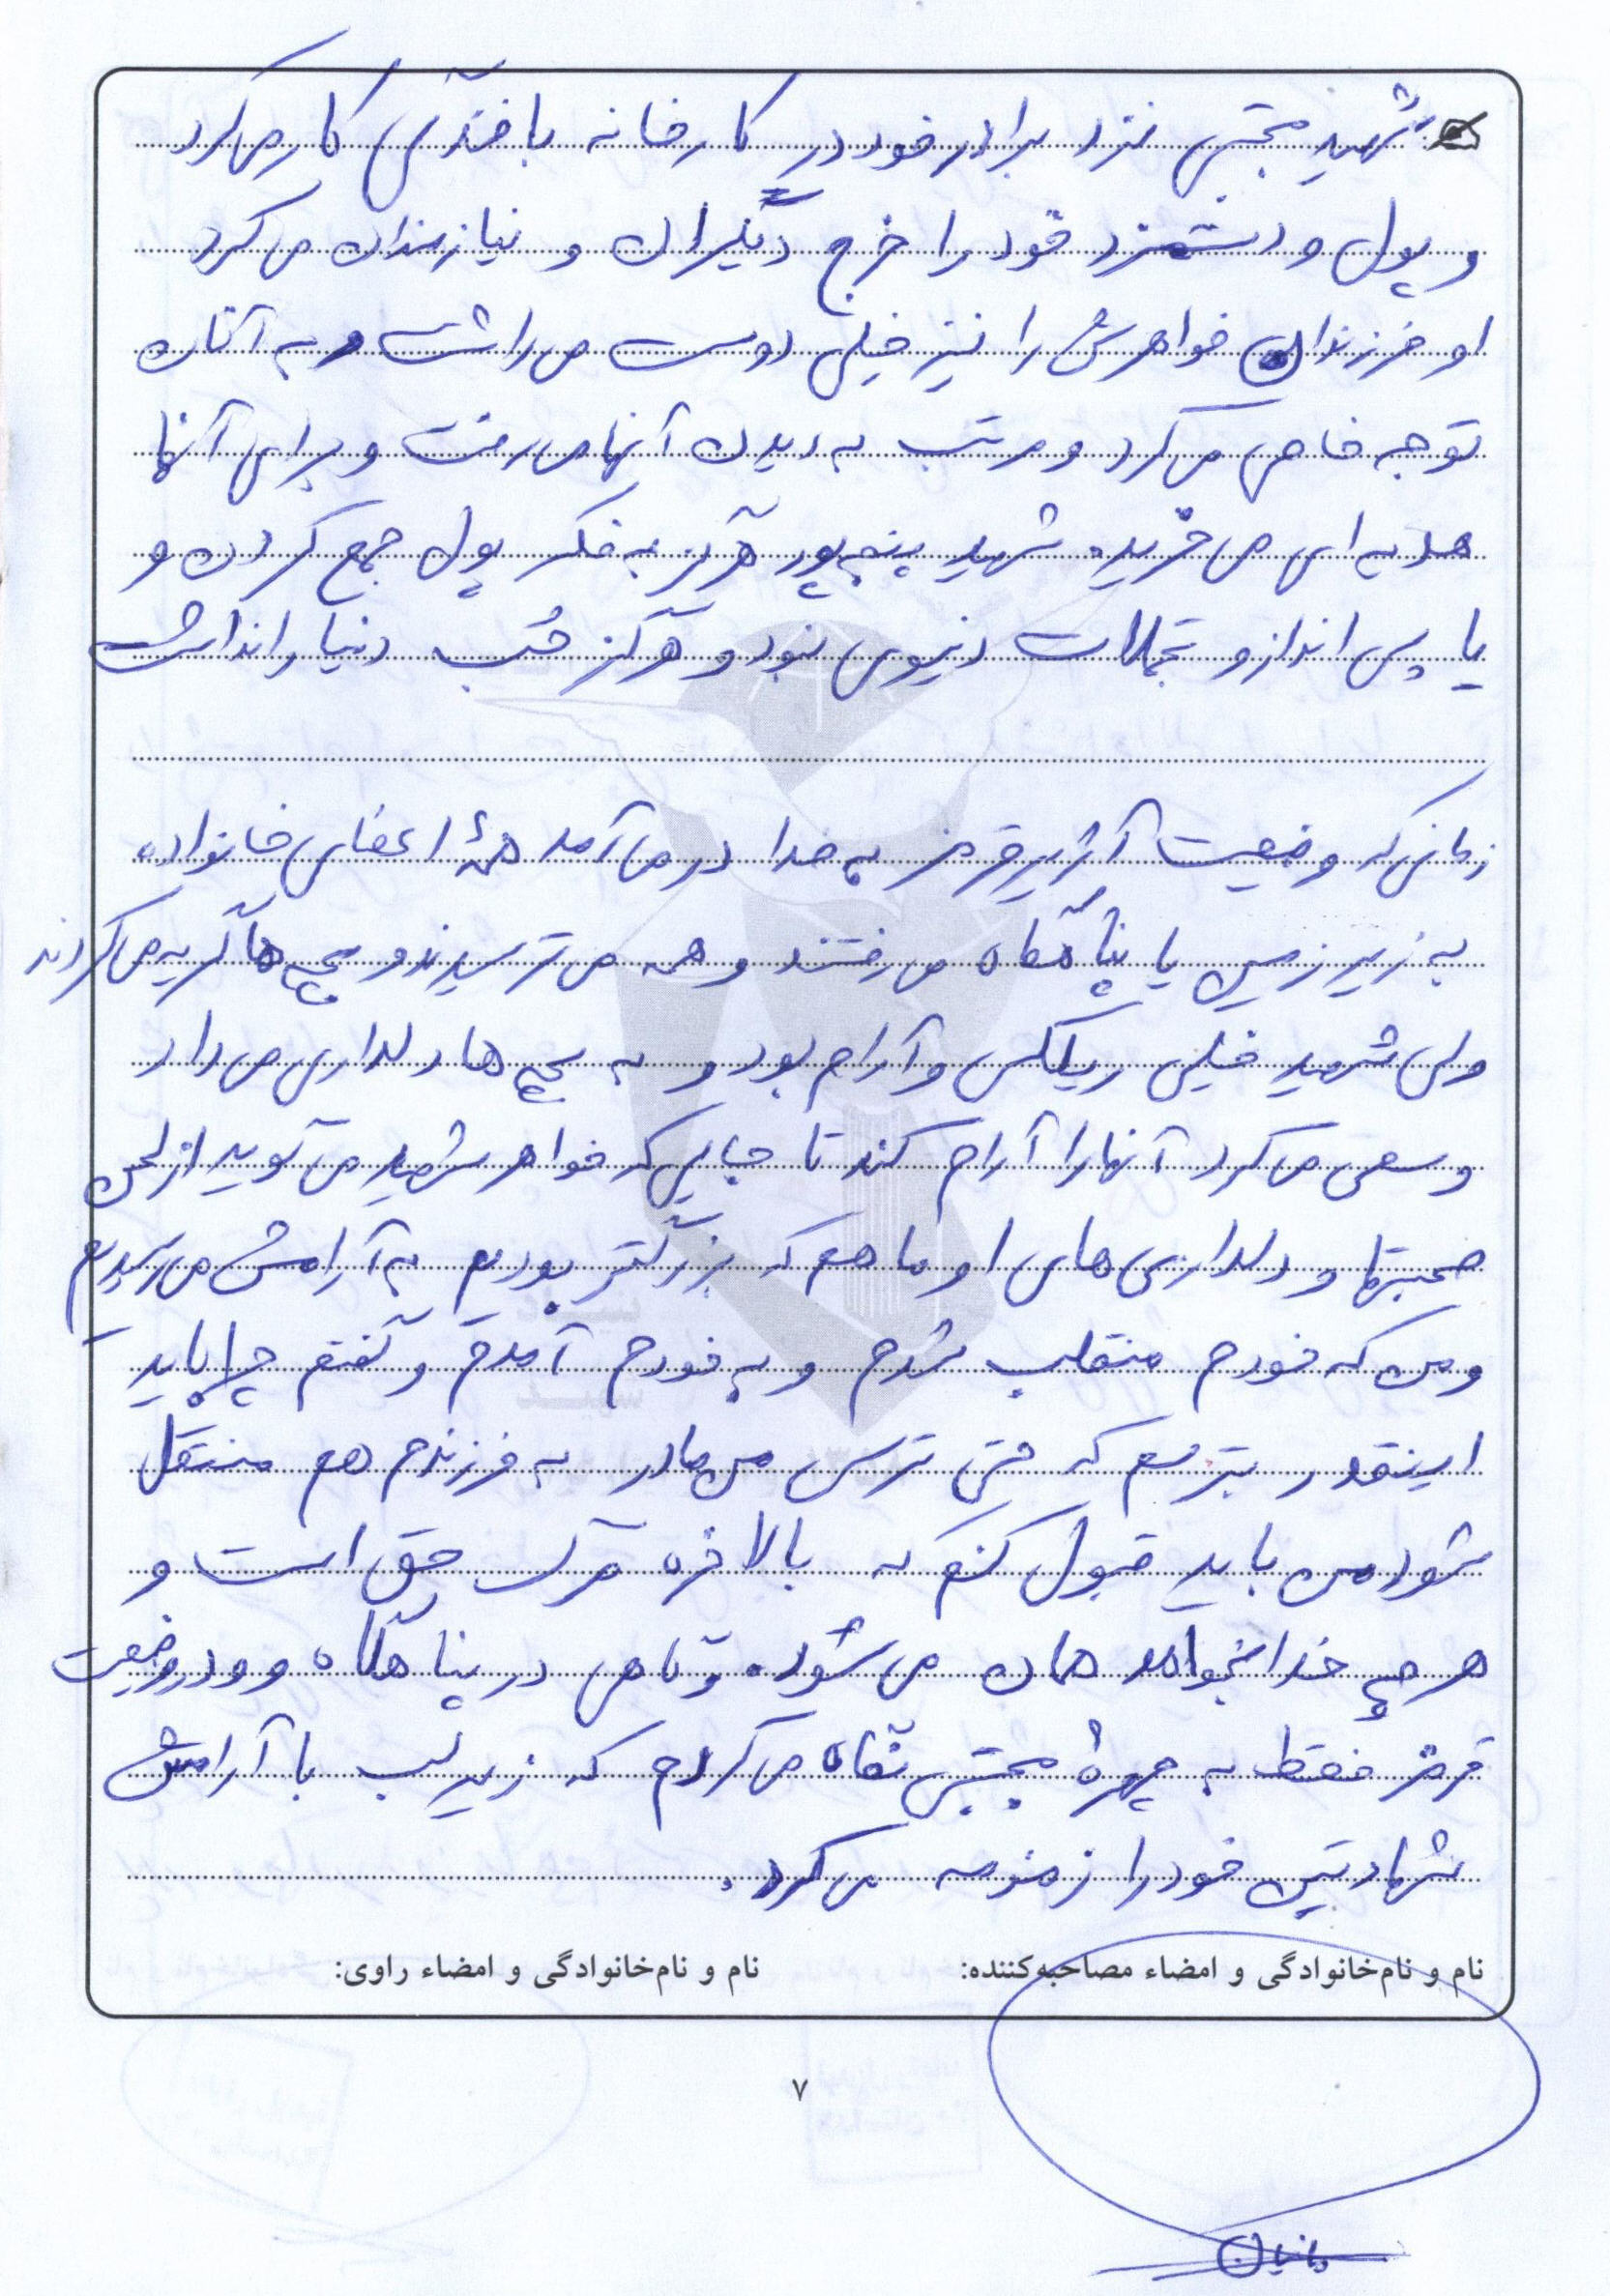 شهید مجتبی نزد برادر خود در کارخانه بافندگی کار می‌کرد
و پول و دستمزد خود را خرج دیگران و نیازمندان می‌کرد
او فرزندان خواهرش را نیز خیلی دوست می‌داشت و به آنان
توجه خاصی می‌کرد و مرتب به دیدن آنها می‌رفت و برای آنها
هدیه‌ای می‌خرید. شهید پنجه‌پور هرگز به فکر پول جمع کردن و
یا پس‌انداز و تجملات دنیوی نبود و هرگز حُب دنیا را نداشت
زمانی که وضعیت آژیر قرمز به صدا در می‌آمد همهٔ اعضای خانواده
به زیرزمین یا پناهگاه می‌رفتند و همه می‌ترسیدند و بچه‌ها گریه می‌کردند
ولی شهید خیلی ریلکس و آرام بود و به بچه‌ها دلداری می‌داد
و سعی می‌کرد آنها را آرام کند تا جایی که خواهر شهید می‌گوید از لحن
صحبتها و دلداری‌های او ما هم که بزرگتر بودیم به آرامش می‌رسیدیم
و من که خودم منقلب شدم و به خودم آمدم و گفتم چرا باید
اینقدر بترسم که حتی ترس من مادر به فرزندم هم منتقل
شود من باید قبول کنم که بالاخره مرگ حق است و
هر چه خدا بخواهد همان می‌شود. و تمامی در پناهگاه و در وضعیت
قرمز فقط به چهرهٔ مجتبی نگاه می‌کردم که زیر لب با آرامش
شهادتین خود را زمزمه می‌کرد.
نام و نام‌خانوادگی و امضاء مصاحبه‌کننده: نام و نام‌خانوادگی و امضاء راوی:
۷